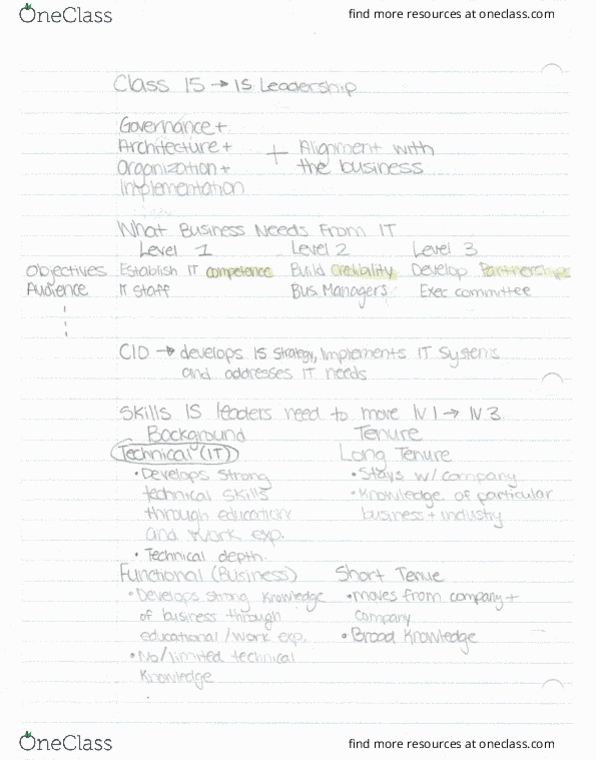 OneClass find more resources at oneclass.com
Class 15 → IS Leadership
Governance +
Architecture + + Alignment with
Organization + the business
Implementation
What Business Needs From IT
Level 1 Level 2 Level 3
Objectives Establish IT competence Build credibility Develop Partnerships
Audience IT staff Bus Managers Exec committee
CIO → develops IS strategy, implements IT systems
and addresses IT needs
Skills IS leaders need to move lvl → lv 3
Background Tenure
Technical (IT) Long Tenure
• Develops strong • Stays w/ company
technical skills • Knowledge of particular
through education business + industry
and work exp.
• Technical depth.
Functional (Business) Short Tenue
• Develops strong knowledge • moves from company +
of business through company
educational / work exp. • Broad Knowledge
• No/limited technical
Knowledge
OneClass find more resources at oneclass.com